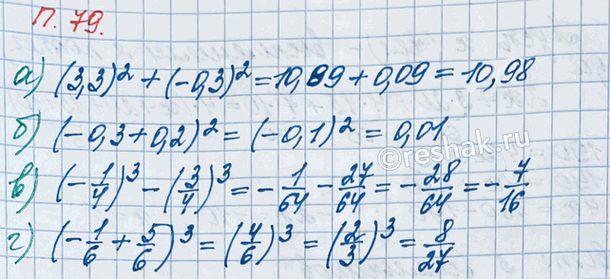 П. 79.
а) (3,3)² + (-0,3)² = 10,89 + 0,09 = 10,98
б) (-0,3 + 0,2)² = (-0,1)² = 0,01
в) (-1/4)³ - (3/4)³ = -1/64 - 27/64 = -28/64 = -7/16
г) (-1/6 + 5/6)³ = (4/6)³ = (2/3)³ = 8/27
reshak.ru